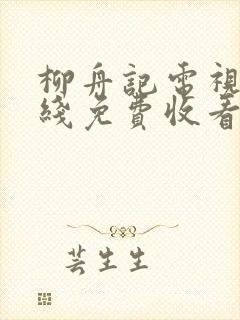 柳舟記電視
綫免費收看
芸生生